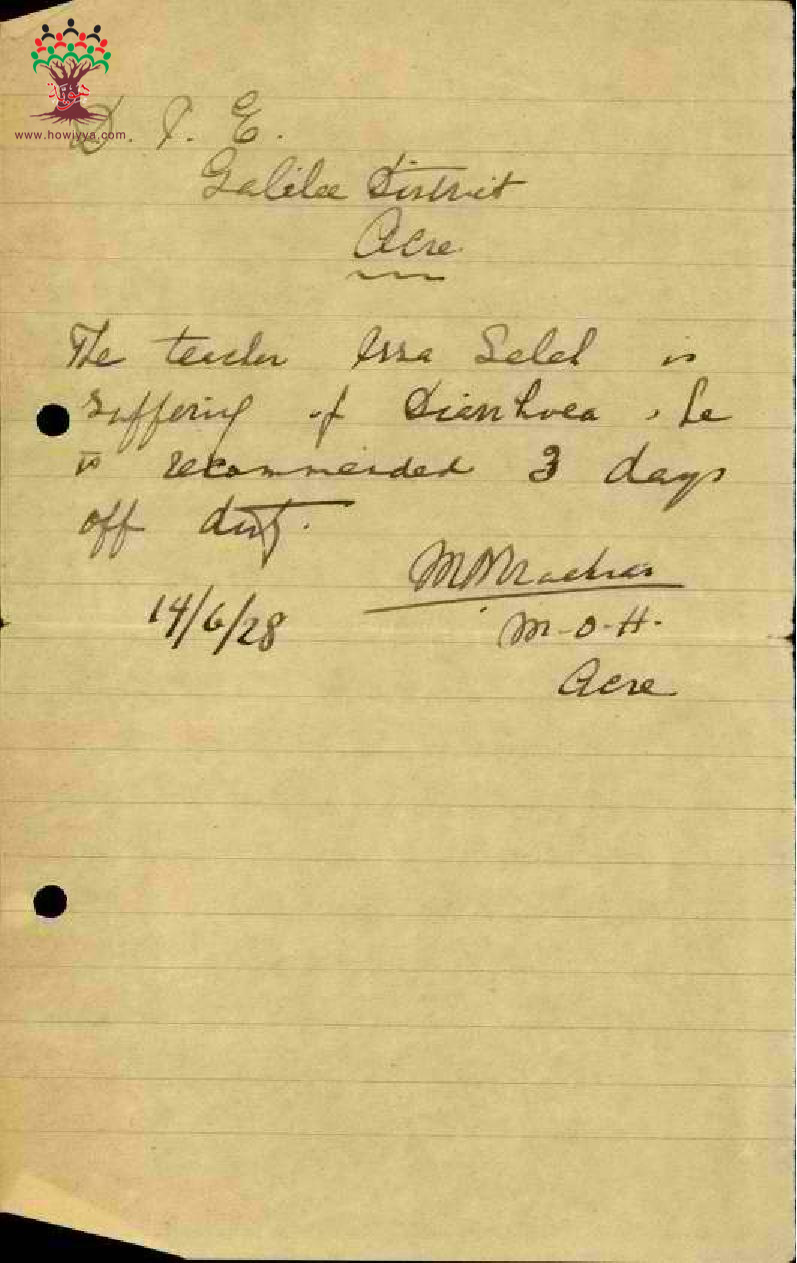 www.howiyya.com
D. I. E.
Galilee District
Acre
The teacher Issa Saleh is
suffering of Diarrhoea, he
is recommended 3 days
off duty.
14/6/28
M.O.H.
Acre